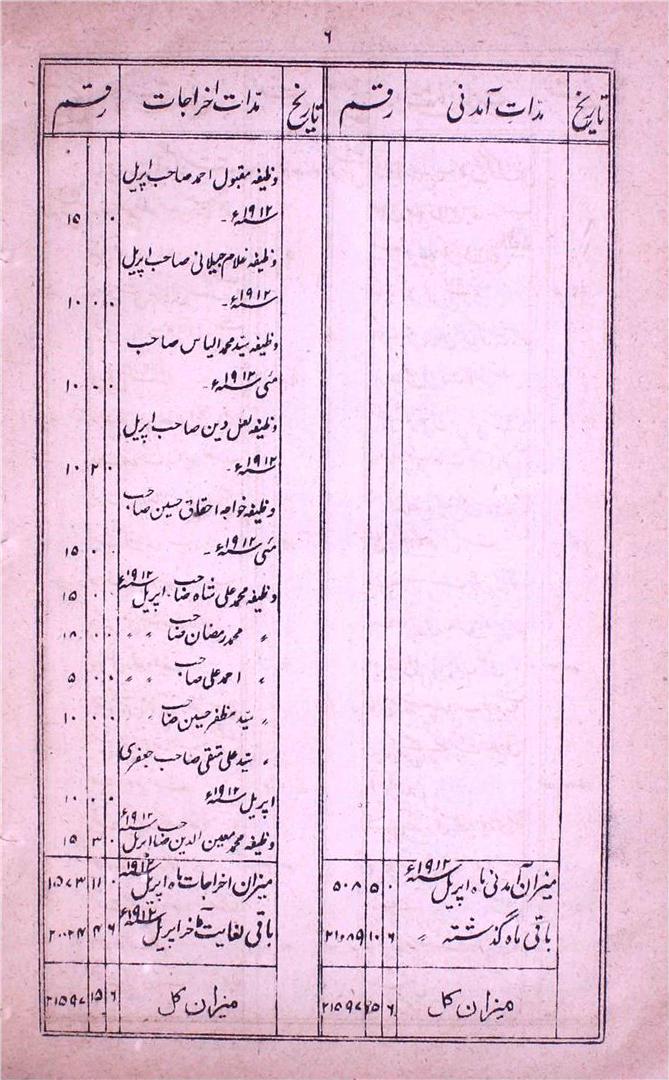 ۶
تاریخ مدات آمدنی رقم تاریخ مدات اخراجات رقم
وظیفہ مقبول احمد صاحب اپریل
۱۹۱۲ء - ۱۵ ۰ ۰
وظیفہ غلام جیلانی صاحب اپریل
۱۹۱۲ء - ۱۰ ۰ ۰
وظیفہ سیّد محمد الیاس صاحب
مئی ۱۹۱۲ء - ۱۰ ۰ ۰
وظیفہ لعل دین صاحب اپریل
۱۹۱۲ء - ۱۰ ۲ ۰
وظیفہ خواجہ احقاق حسین صاحب
مئی ۱۹۱۲ء - ۱۵ ۰ ۰
وظیفہ محمد علی شاہ صاحب اپریل ۱۹۱۲ء ۱۵ ۰ ۰
〃 محمد رمضان صاحب 〃 〃 ۰ ۰
〃 احمد علی صاحب 〃 〃 ۵ ۰ ۰
〃 سیّد مظفر حسین صاحب 〃 ۱۰ ۰ ۰
〃 سیّد علی متقی صاحب جعفری
اپریل ۱۹۱۲ء ۱۰ ۰ ۰
وظیفہ محمد معین الدین صاحب اپریل ۱۹۱۲ء ۱۵ ۳ ۰
میزان آمدنی ماہ اپریل ۱۹۱۲ء ۵۰۸ ۵ ۰ میزان اخراجات ماہ اپریل ۱۹۱۲ء ۱۵۷۳ ۱۱ ۰
باقی ماہ گذشتہ 〃 ۲۱۰۸۹ ۱۰ ۶ باقی لغایت آخر اپریل ۱۹۱۲ء ۲۰۰۲۴ ۴ ۶
میزان کل ۲۱۵۹۷ ۱۵ ۶ میزان کل ۲۱۵۹۷ ۱۵ ۶